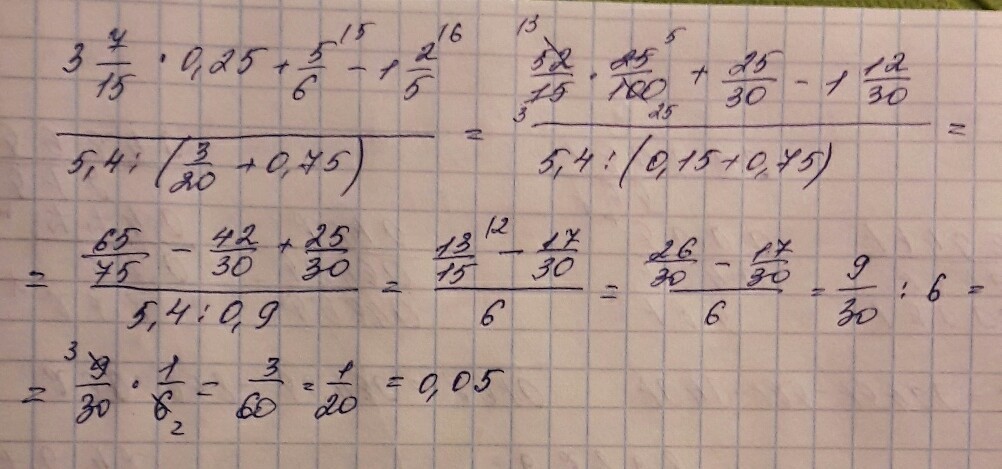 3 7/15 · 0,25 + 5/6 ^15 - 1 2/5 ^16 / 5,4 : (3/20 + 0,75) = 13 52/15 3 · 25/100 5 25 + 25/30 - 1 12/30 / 5,4 : (0,15 + 0,75) =
= 65/75 - 42/30 + 25/30 / 5,4 : 0,9 = 13/15 ^12 - 17/30 / 6 = 26/30 - 17/30 / 6 = 9/30 : 6 =
= 3 9/30 · 1/6 2 = 3/60 = 1/20 = 0,05